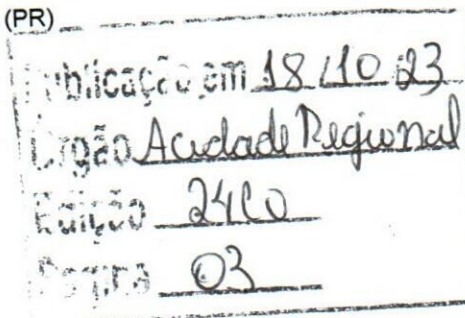 (PR)
Publicação em 18/10/23
Órgão Acidade Regional
Edição
Página 03